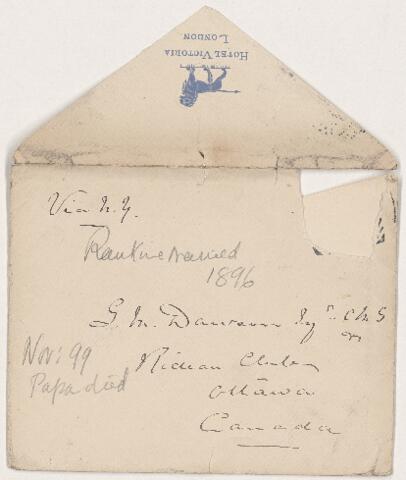 HOTEL VICTORIA
LONDON
Via N.Y.
Rankine married
1896
G. M. Dawson Esqre C.M.G
Nov: 99
Papa died
Rideau Club
Ottawa
Canada